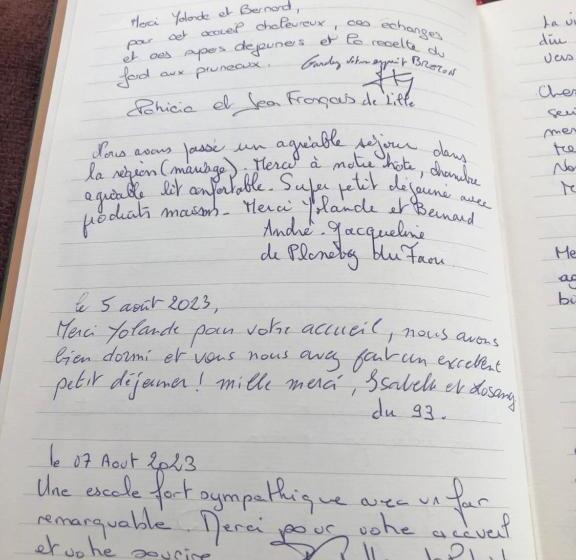 Merci Yolande et Bernard,
pour cet accueil chaleureux, ces échanges
et ces supers dejeuners et la recette du
fard aux pruneaux. Gardez votre esprit BREIZH
Patricia et Jean François de Lille
Nous avons passé un agréable séjour dans
la région (mariage). Merci à notre hôte, chambre
agréable lit confortable. Super petit déjeuné avec
produits maison. Merci Yolande et Bernard
André. Jacqueline
de du Faou
le 5 août 2023,
Merci Yolande pour votre accueil, nous avons
bien dormi et vous nous avez fait un excellent
petit déjeuner ! mille merci, Isabelle et
du 93.
le 07 Aout 2023
Une escale fort sympathique avec un far
remarquable. Merci pour votre accueil
et votre sourire
La vi
du
vers
Cher
mer
No
Me
ag
bi